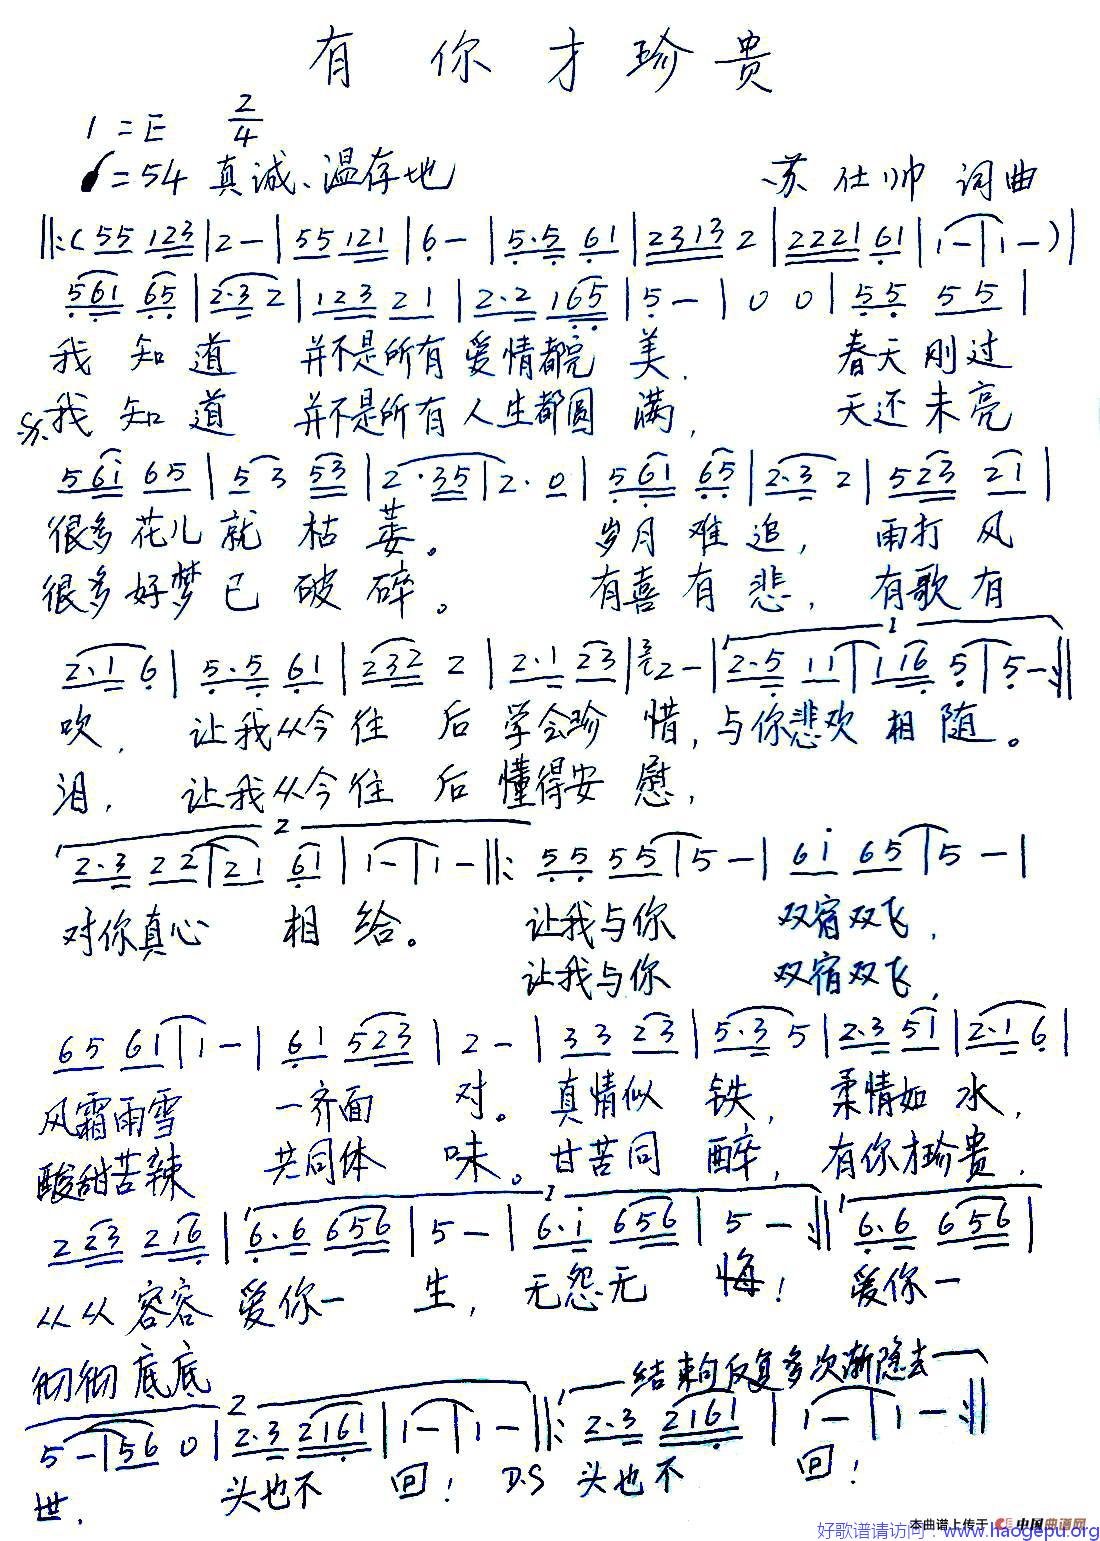 有你才珍贵
1=E 2/4
=54 真诚、温存地 苏仕帅 词曲
‖:(55 123|2-|55 121|6-|5·5 61|2313 2|2221 61|1-|1-)|
561 65|2·3 2|123 21|2·2 165|5-|0 0|55 55|
我知道 并不是所有爱情都完美. 春天刚过
我知道 并不是所有人生都圆满, 天还未亮
561 65|5 3 53|2·35|2·0|561 65|2·3 2|523 21|
很多花儿就枯萎。 岁月难追, 雨打风
很多好梦已破碎。 有喜有悲, 有歌有
2·1 6|5·5 61|232 2|2·1 23|3 2-|2·5 11|1 16 5|5-:‖
吹, 让我从今往后学会珍惜,与你悲欢相随。
泪, 让我从今往后懂得安慰,
2
2·3 22|21 61|1-|1-‖:55 55|5-|61 65|5-|
对你真心相给。 让我与你 双宿双飞,
让我与你 双宿双飞,
65 61|1-|61 523|2-|33 23|5·3 5|2·3 51|2·1 6|
风霜雨雪 一齐面对。真情似铁, 柔情如水,
酸甜苦辣 共同体味。甘苦同醉, 有你才珍贵,
223 216|6·6 656|5-|6·1 656|5-:‖6·6 656|
从从容容爱你一生, 无怨无悔! 爱你一
彻彻底底
2 结束句反复多次渐隐去
5-|56 0|2·3 2161|1-|1-‖:2·3 2161|1-|1-:‖
世, 头也不回! D.S 头也不回!
本曲谱上传于 中国曲谱网
好歌谱请访问:www.haogepu.org